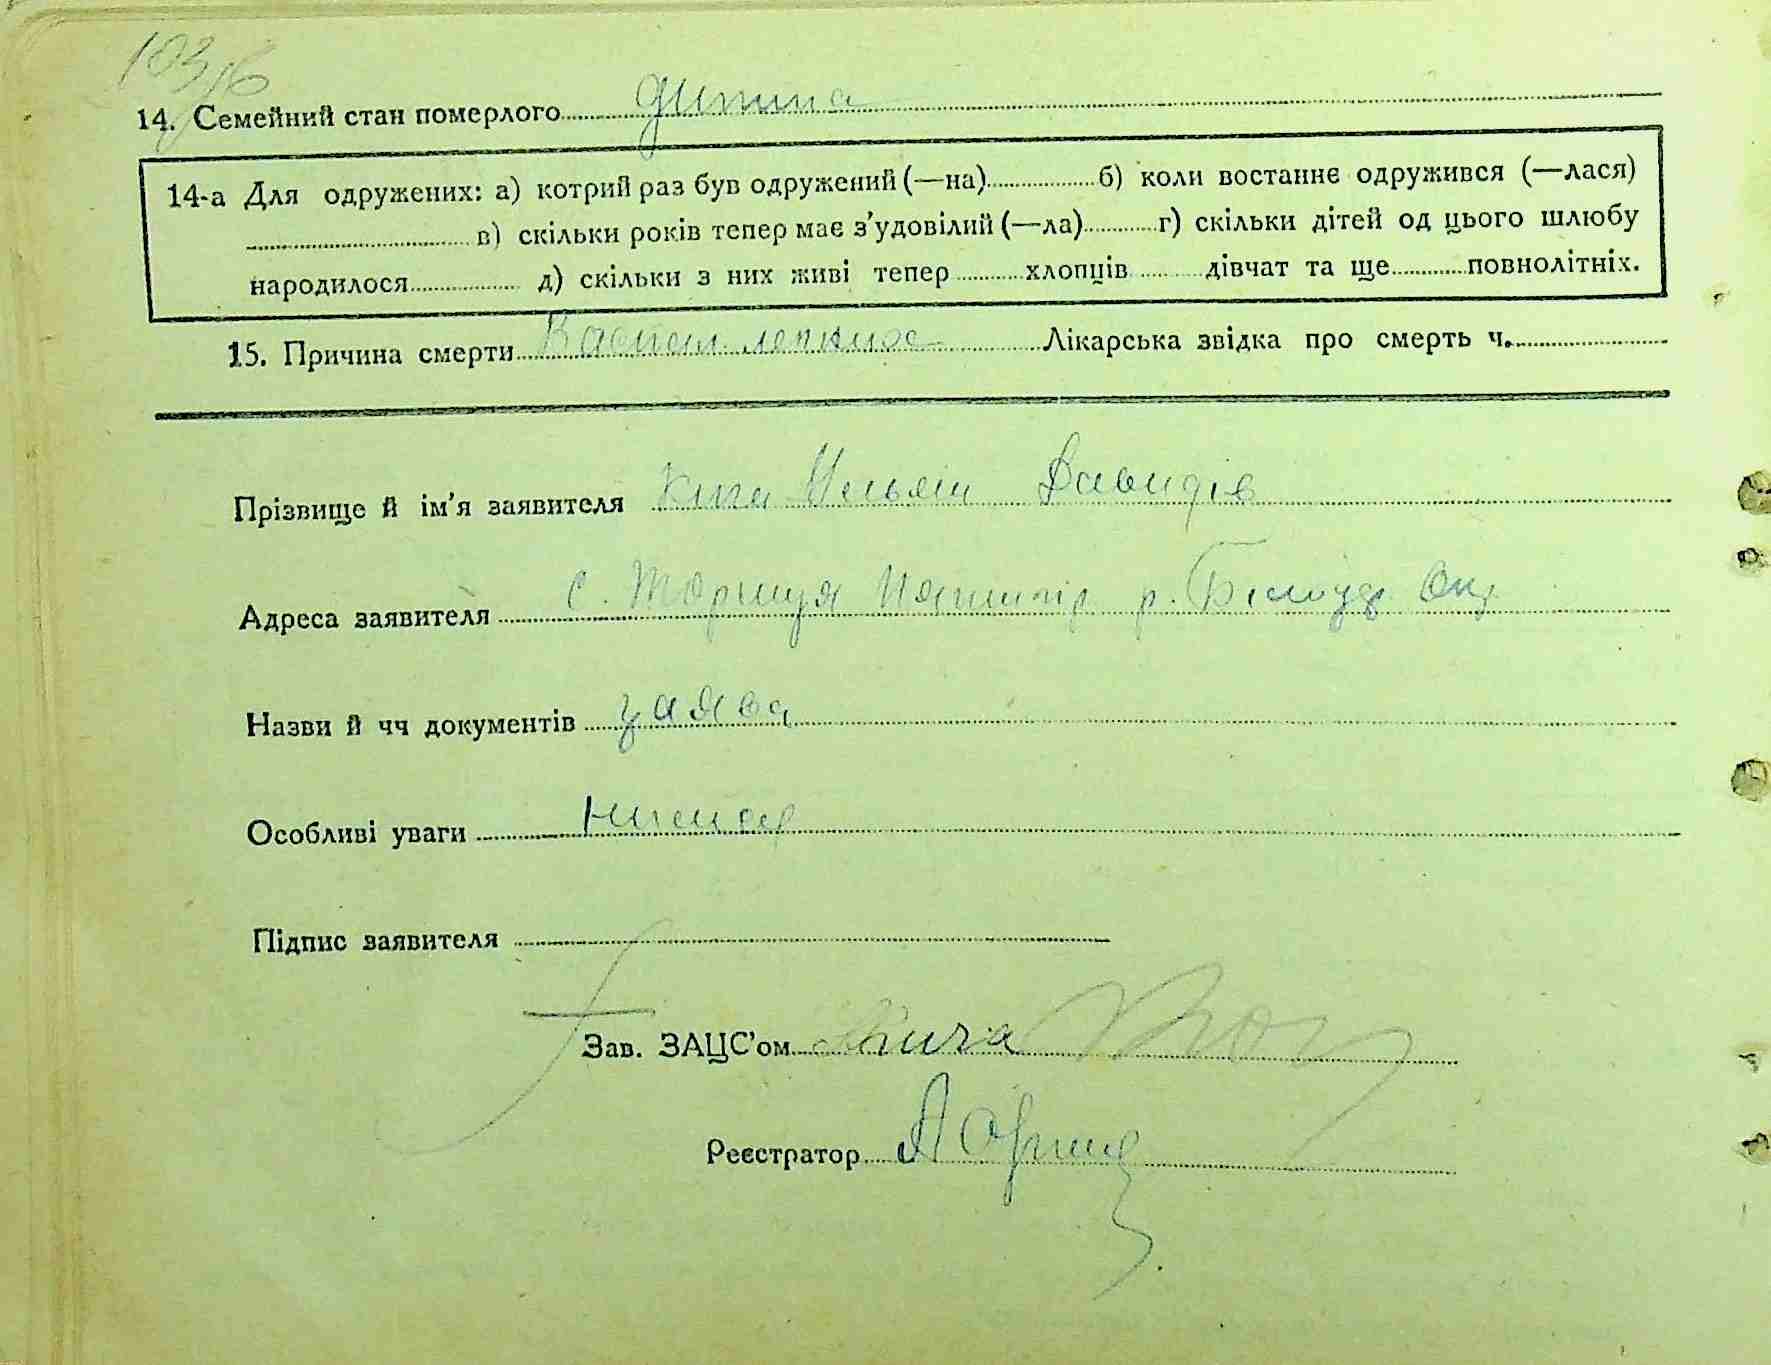 14. Семейний стан померлого дитина
14-а Для одружених: а) котрий раз був одружений (—на) б) коли востаннє одружився (—лася)
в) скільки років тепер має з’удовілий (—ла) г) скільки дітей од цього шлюбу
народилося д) скільки з них живі тепер хлопців дівчат та ще повнолітніх.
15. Причина смерти легких Лікарська звідка про смерть ч.
Прізвище й ім’я заявителя Давидів
Адреса заявителя с. р.
Назви й чч документів заява
Особливі уваги немає
Підпис заявителя
Зав. ЗАЦС’ом
Реєстратор